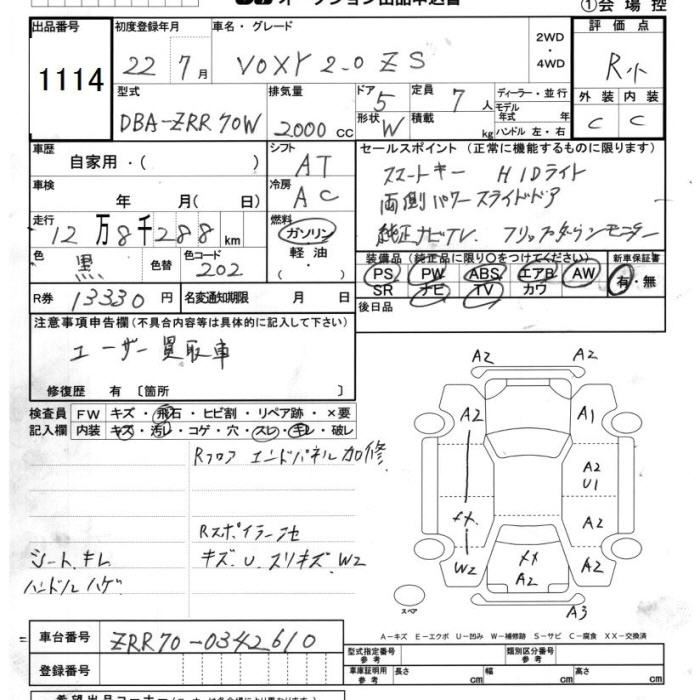 オークション出品申込書
①会場控
出品番号 初度登録年月 車名・グレード 評価点
1114
22 7月 VOXY 2.0 ZS 2WD ・ 4WD R小
型式 排気量 ドア 定員 ディーラー・並行 外装 内装
DBA-ZRR70W 2000cc 5 7人 モデル年式 年 C C
形状 W 積載 kg ハンドル 左・右
車歴 シフト セールスポイント (正常に機能するものに限ります)
自家用・( ) AT スマートキー HIDライト
車検 冷房 両側パワースライドドア
年 月( 日) AC
走行 燃料 純正ナビTV. フリップダウンモニター
12万8千288km ガソリン・軽油・
装備品 (純正品に限り○をつけてください) 新車保証書
色 色替 色コード PS PW ABS エアB AW 有・無
黒 202 SR ナビ TV カワ
R券 13330円 名変通知期限 月 日 後日品
注意事項申告欄(不具合内容等は具体的に記入して下さい)
ユーザー買取車
修復歴 有 〔箇所 〕
検査員 FW キズ・飛石・ヒビ割・リペア跡・×要
記入欄 内装 キズ・汚レ・コゲ・穴・スレ・キレ・破レ
Rフロア エンドパネル 加修
Rスポイラー他
シート、キレ キズ. U. スリキズ. W2
ハンドルハゲ
A2 A2
A2 A1
A2
U1
XX. XX A2
W2 A2 A2
スペア A3
A-キズ E-エクボ U-凹み W-補修跡 S-サビ C-腐食 XX-交換済
車台番号 ZRR70-0342610
登録番号
型式指定番号 参考 類別区分番号 参考
車庫証明用 参考 長さ cm 幅 cm 高さ cm